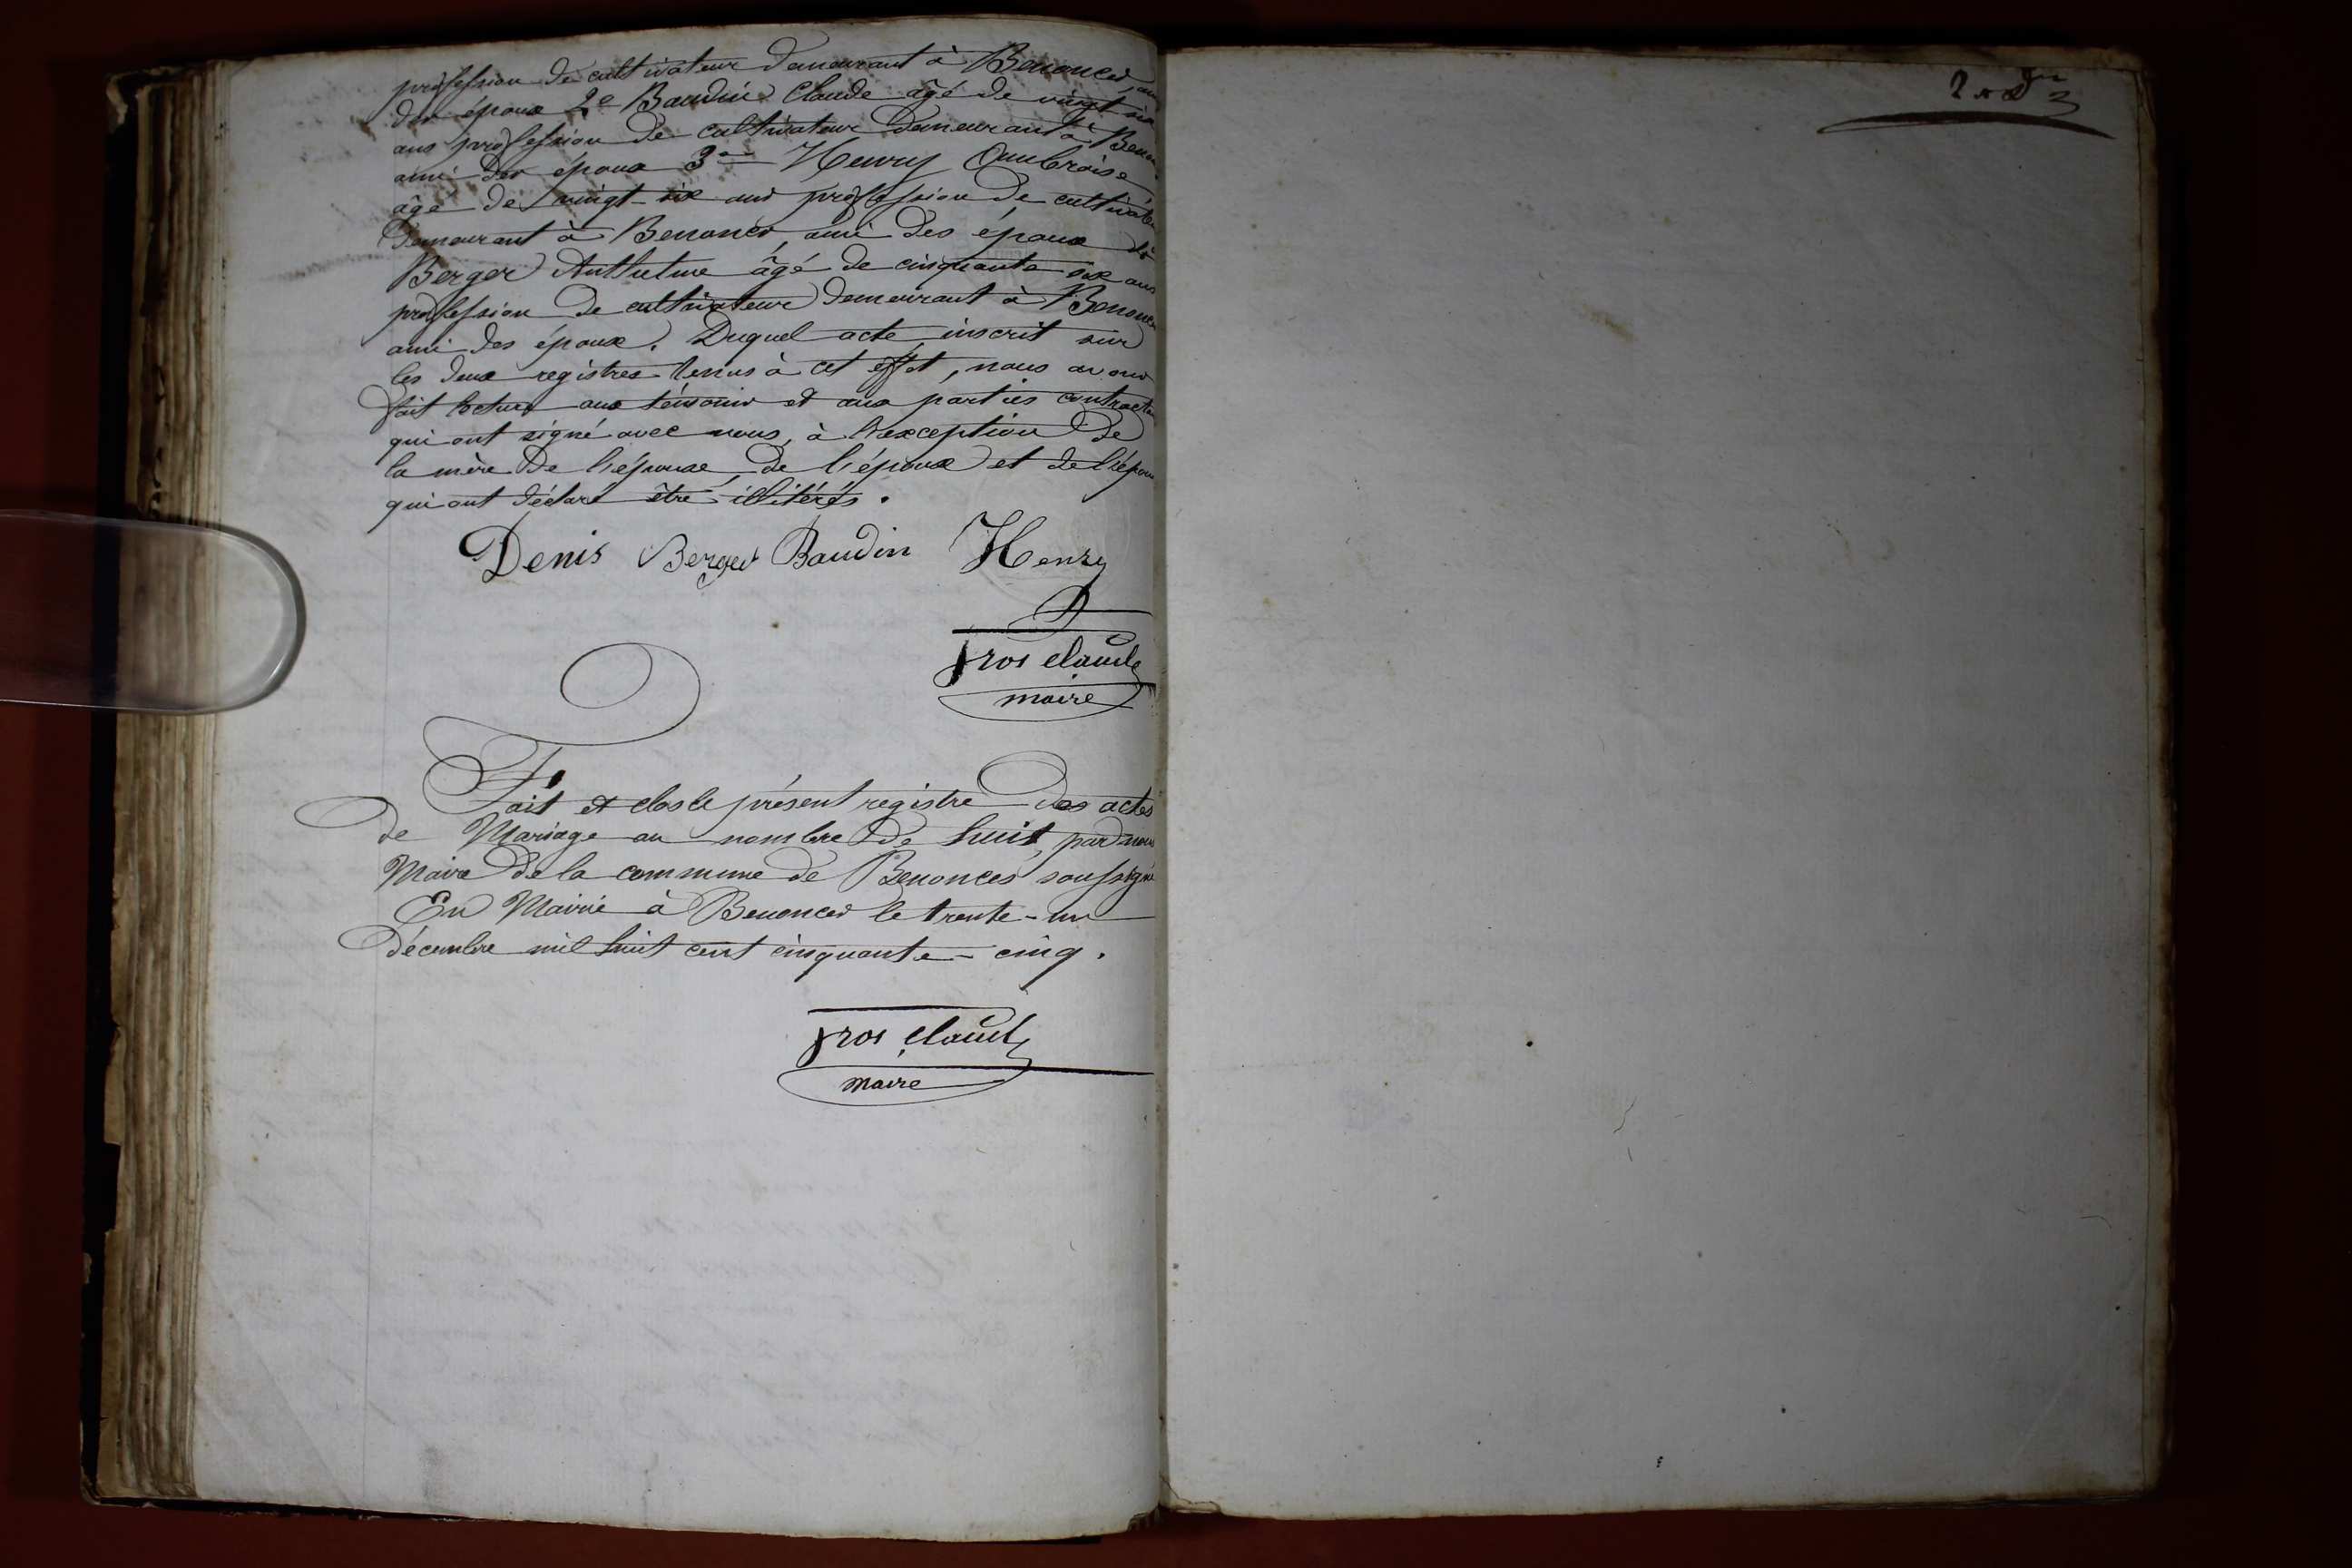 profession de cultivateur demeurant à Benonces, ami
des époux 2e Baudin Claude âgé de vingt six
ans profession de cultivateur demeurant à Benon
ami des époux 3me Henry Ambroise
âgé de vingt-six ans profession de cultivateu
demeurant à Benonces, ami des époux
Berger Anthelme âgé de cinquante six ans
profession de cultivateur demeurant à Benonces
ami des époux. Duquel acte, inscrit sur
les deux registres tenus à cet effet, nous avons
fait lecture aux témoins et aux parties contracta
qui ont signé avec nous, à l'exception de
la mère de l'épouse, de l'époux et de l'épou
qui ont déclaré être illitérés.
Denis Berger Baudin Henry
maire
Fait et clos le présent registre des actes
de Mariage au nombre de huit, par nous
Maire de la commune de Benonces soussigné
En Mairie à Benonces le trente-un
décembre mil huit cent cinquante-cinq.
maire